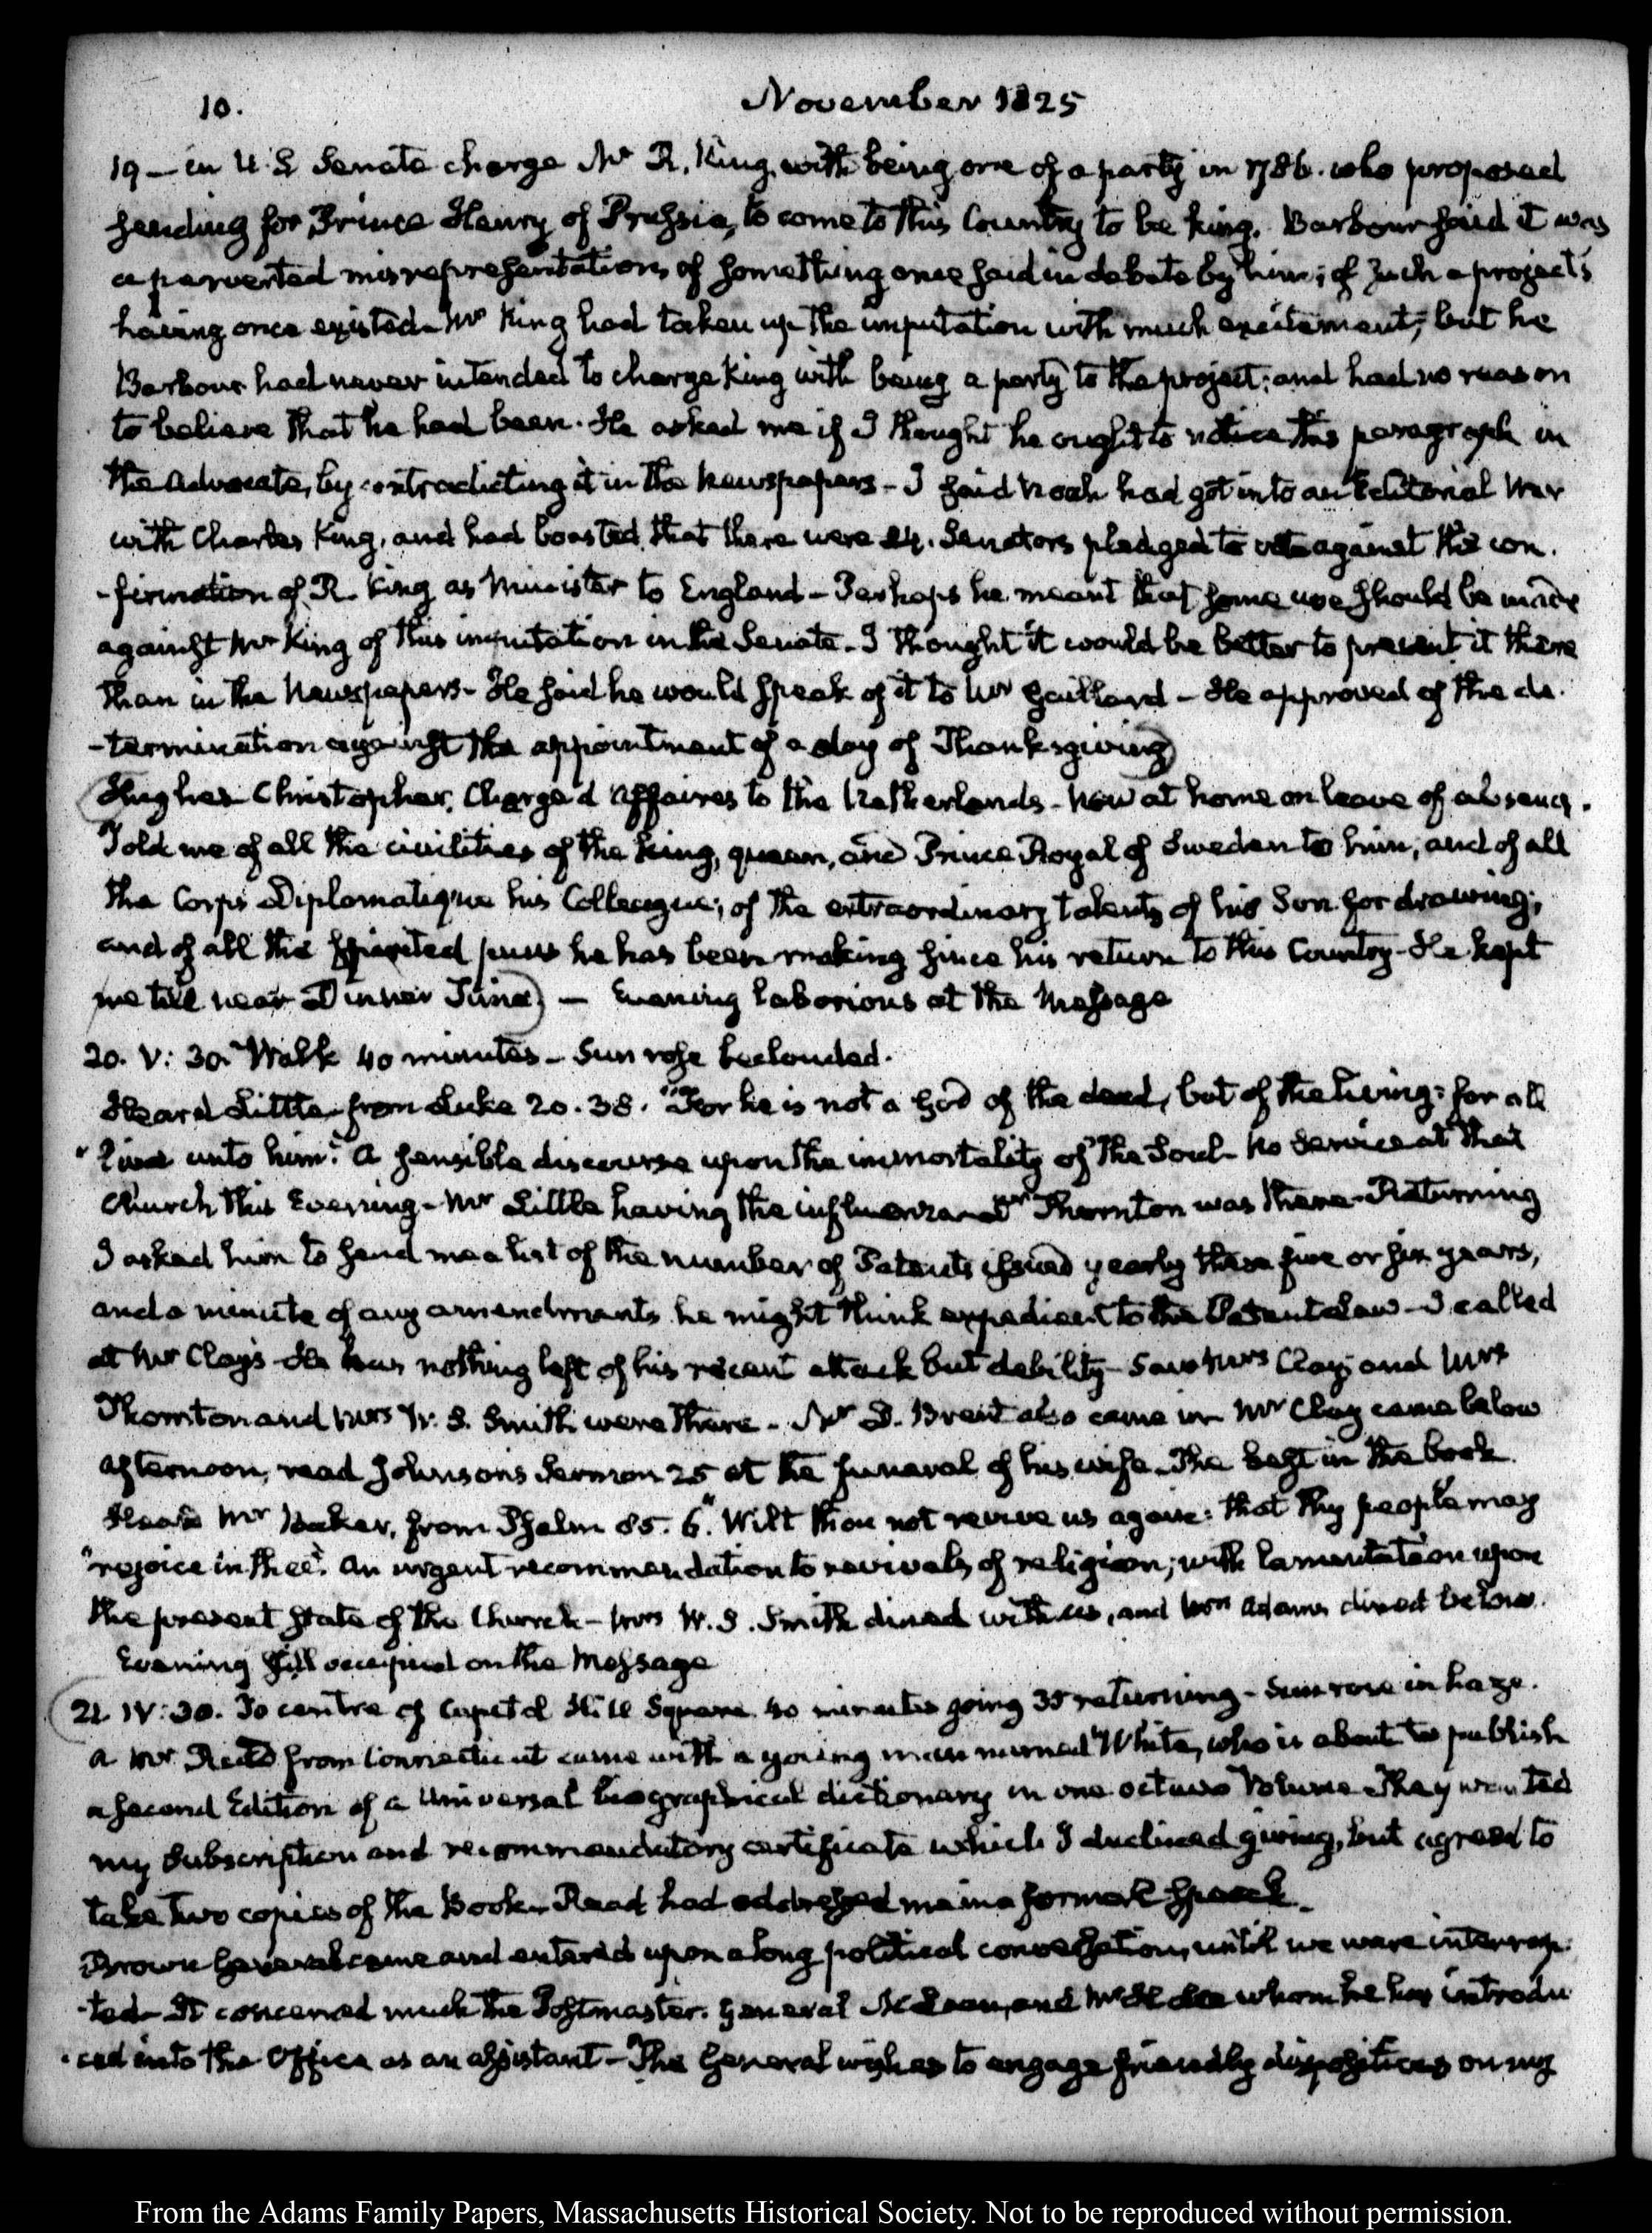 10. November 1825
19 — in U.S Senate charge Mr R. King, with being one of a party in 1786. who proposed
sending for Prince Henry of Prussia, to come to this Country to be king. Barbour said it was
a perverted misrepresentation, of something once said in debate by him; of such a project's
having once existed— Mr King had taken up the imputation with much excitement; but he
Barbour had never intended to charge King with being a party to the project; and had no reason
to believe that he had been. He asked me if I thought he ought to notice this paragraph in
the Advocate, by contradicting it in the Newspapers — I said Noah had got into an Editorial War
with Charles King, and had boasted, that there were 24. Senators pledged to vote against the con.
-firmation of R. King as Minister to England — Perhaps he meant that some use should be made
against Mr King of this imputation in the Senate. I thought it would be better to present it there
than in the Newspapers — He said he would speak of it to Mr Gaillard — He approved of the de.
-termination against the appointment of a day of Thanksgiving
Hughes Christopher. Chargé d'Affaires to the Netherlands — Now at home on leave of absence.
Told me of all the civilities of the king, queen, and Prince Royal of Sweden to him; and of all
the Corps Diplomatique his Colleagues; of the extraordinary talents of his Son for drawing;
and of all the puns he has been making since his return to this Country — He kept
me till near Dinner Time — Evening laborious at the Message
20. V: 30. Walk 40 minutes — Sun rose beclouded.
Heard Little from Luke 20. 38. "For he is not a God of the dead, but of the living: for all
"live unto him". A sensible discourse upon the immortality of the Soul — No Service at that
Church this Evening — Mr Little having the influenza. Dr Thornton was there — Returning
I asked him to send me a list of the number of Patents issued yearly these five or six years,
and a minute of any amendments he might think expedient to the Patent Law — I called
at Mr Clay's — He has nothing left of his recent attack but debility — Saw Mrs Clay, and Mrs
Thornton and Mrs W. S. Smith were there — Mr D. Brent also came in Mr Clay came below
afternoon, read Johnson's Sermon 25 at the funeral of his wife. The best in the book.
Heard Mr Baker, from Psalm 85. 6. "Wilt thou not revive us again: that thy people may
"rejoice in thee". An urgent recommendation to revivals of religion; with lamentation upon
the present state of the Church — Mrs W. S. Smith dined with us, and Mrs Adams dined below.
Evening still occupied on the Message
21. IV: 30. To centre of Capitol Hill Square 40 minutes going 35 returning — Sun rose in haze.
A Mr Read from Connecticut came with a young man named White, who is about to publish
a second Edition of a Universal biographical dictionary in one octavo Volume. They wanted
my Subscription and recommendatory certificate which I declined giving, but agreed to
take two copies of the Book — Read had addressed me in a formal speech.
Brown General came and entered upon a long political conversation, until we were interrup.
-ted — It concerned much the Postmaster General McLean, and Mr whom he has introdu
-ced into the Office as an assistant — The General wishes to engage friendly dispositions on my
From the Adams Family Papers, Massachusetts Historical Society. Not to be reproduced without permission.